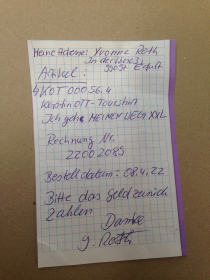 Meine Adresse: Yvonne Roth
In der
99081 Erfurt
Artikel:
KOT 00056.4
Kerstin OTT-Tourshirt
Ich gehe MEINEN WEG XXL
Rechnung Nr.
22002085
Bestelldatum: 08.4.22
Bitte das Geld zurück
zahlen
Danke
Y. Roth